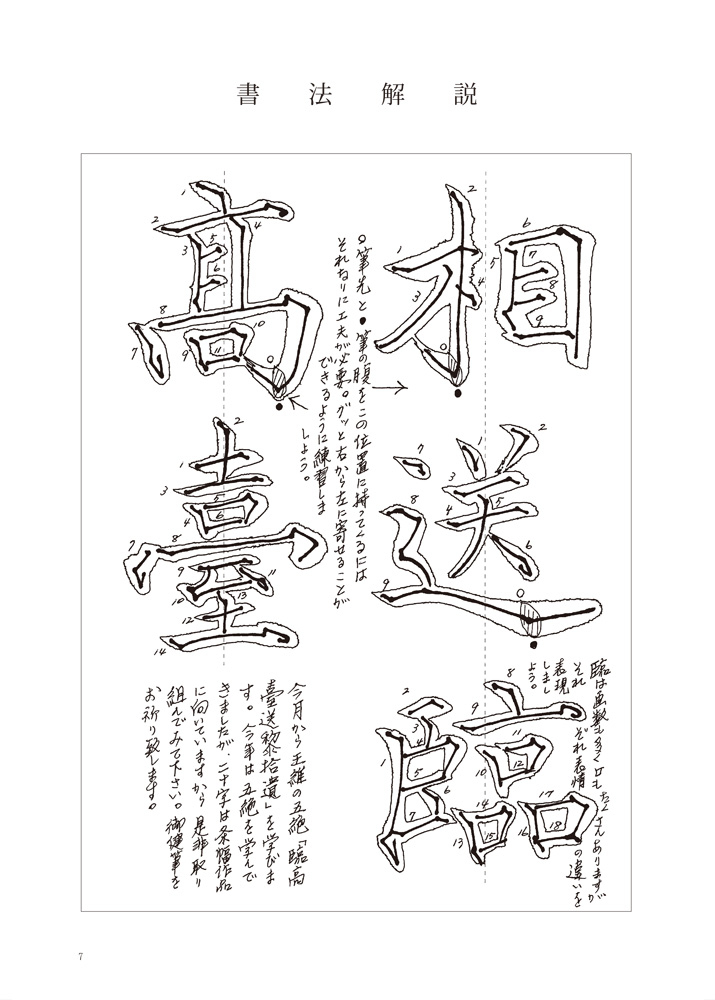 書法解説
相送臨
高臺
○筆先と●筆の腹をこの位置に持ってくるには
それなりに工夫が必要。グッと右から左に寄せることが
できるように練習しま
しょう。
臨は画数も多く口もたくさんありますが
それぞれ表情の違いを
表現
しまし
ょう。
今月から王維の五絶「臨高
臺送黎拾遺」を学びま
す。今年は五絶を学んで
きましたが、二十字は条幅作品
に向いていますから是非取り
組んでみて下さい。御健筆を
お祈り致します。
7